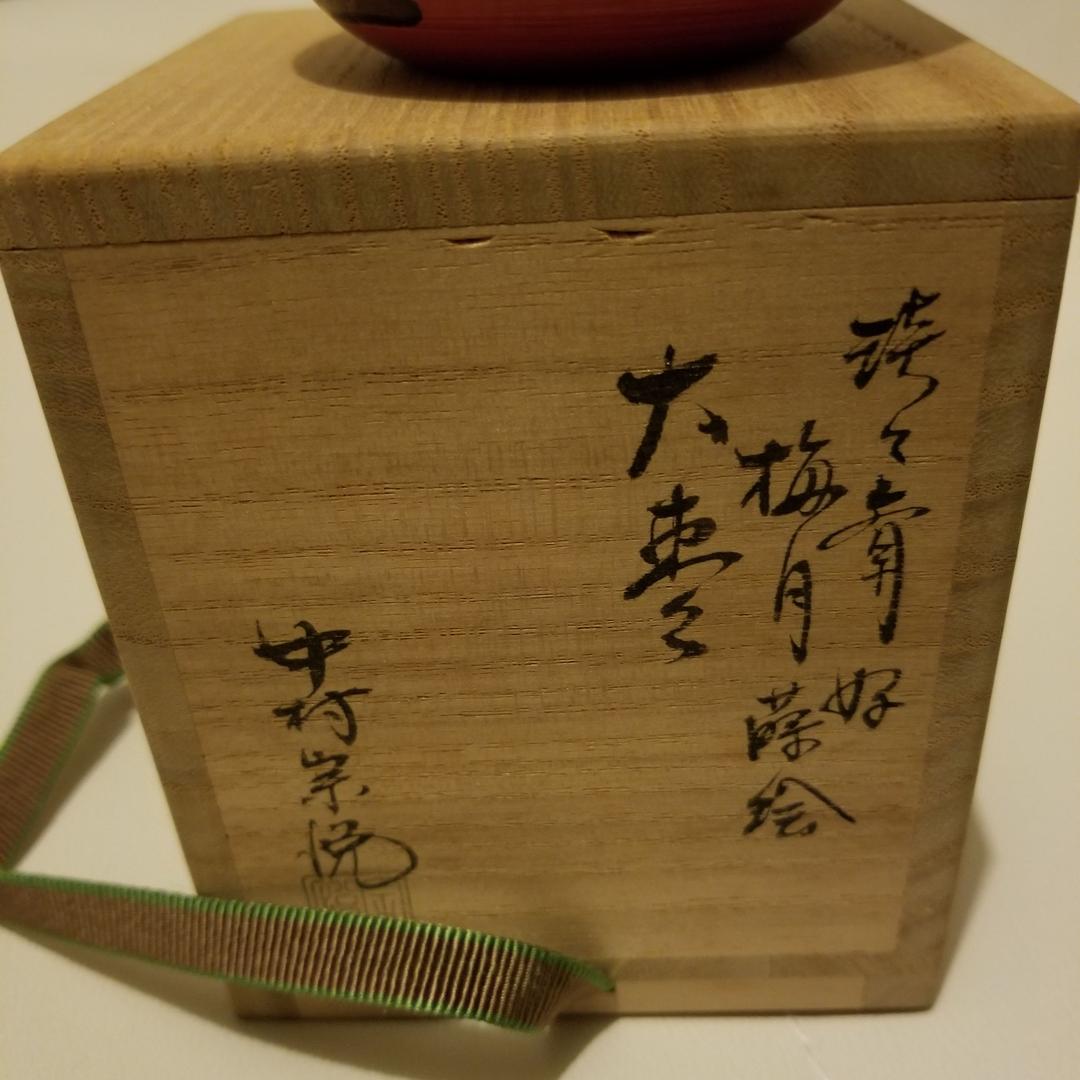 惺々斎好
梅月蒔絵
大棗
中村宗悦